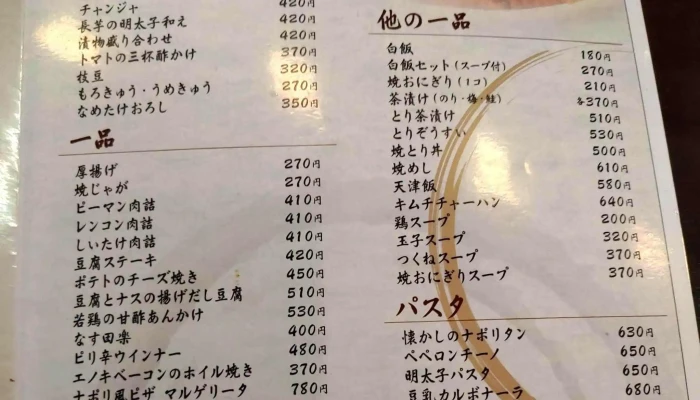 チャンジャ 420円
長芋の明太子和え 420円
漬物盛り合わせ 420円
トマトの三杯酢かけ 370円
枝豆 320円
もろきゅう・うめきゅう 270円
なめたけおろし 350円
一品
厚揚げ 270円
焼じゃが 270円
ピーマン肉詰 410円
レンコン肉詰 410円
しいたけ肉詰 410円
豆腐ステーキ 420円
ポテトのチーズ焼き 450円
豆腐とナスの揚げだし豆腐 510円
若鶏の甘酢あんかけ 530円
なす田楽 400円
ピリ辛ウインナー 480円
エノキベーコンのホイル焼き 370円
ナポリ風ピザ マルゲリータ 780円
他の一品
白飯 180円
白飯セット(スープ付) 270円
焼おにぎり(1コ) 210円
茶漬け(のり・梅・鮭) 各370円
とり茶漬け 510円
とりぞうすい 530円
焼とり丼 500円
焼めし 610円
天津飯 580円
キムチチャーハン 640円
鶏スープ 200円
玉子スープ 320円
つくねスープ 370円
焼おにぎりスープ 370円
パスタ
懐かしのナポリタン 630円
ペペロンチーノ 650円
明太子パスタ 650円
豆乳カルボナーラ 680円